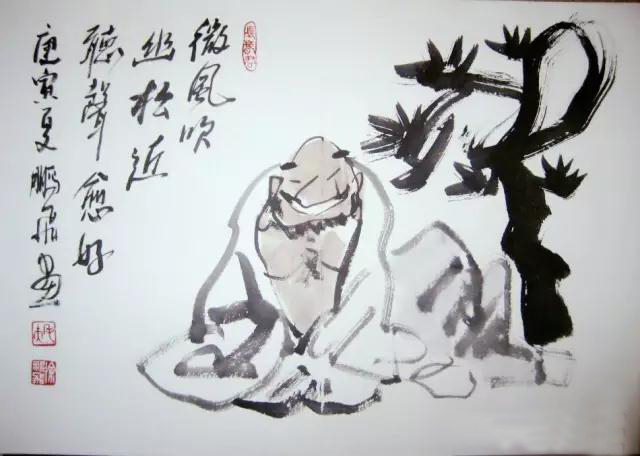 微風吹
幽松近
聽聲愈好
庚寅夏鵬飛畫